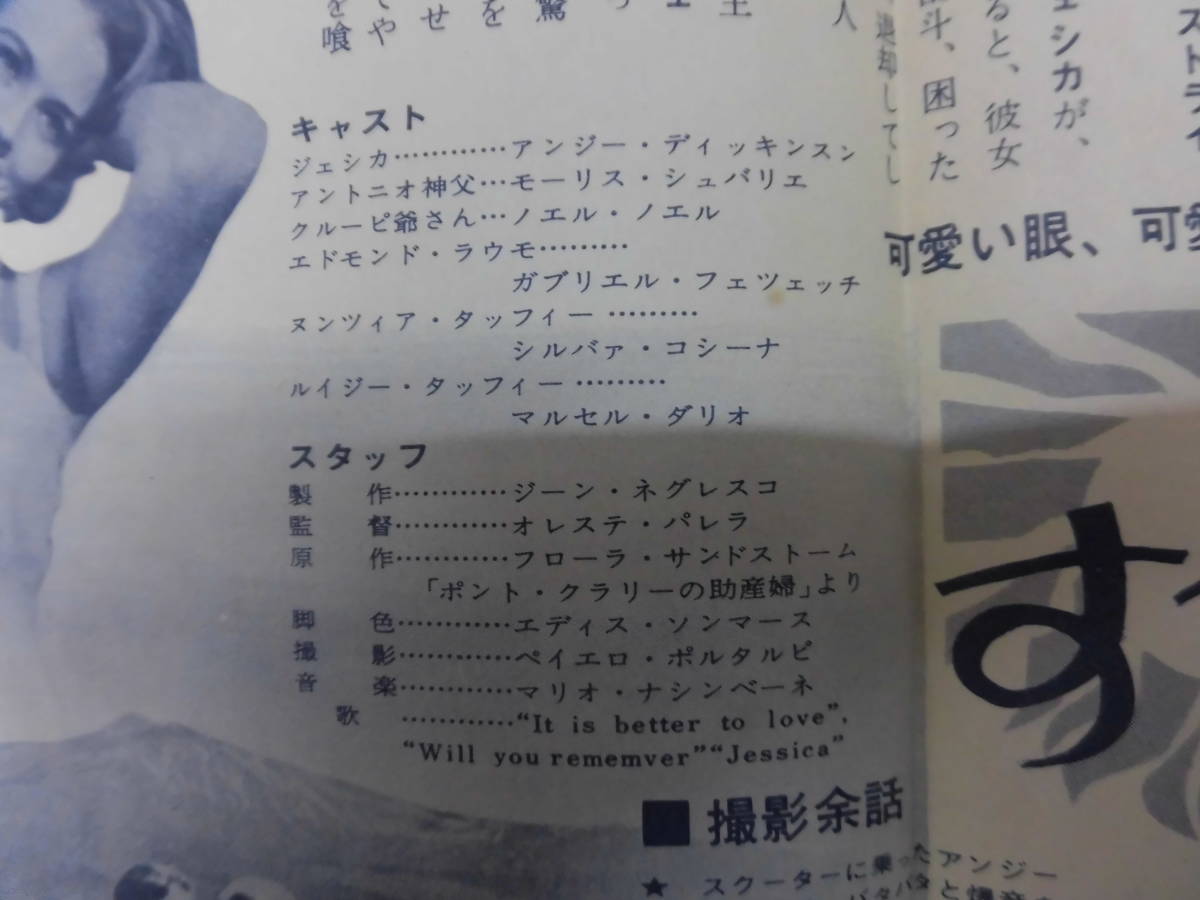 キャスト
ジェシカ…………アンジー・ディッキンスン
アントニオ神父…モーリス・シュバリエ
クルーピ爺さん…ノエル・ノエル
エドモンド・ラウモ………
ガブリエル・フェツェッチ
ヌンツィア・タッフィー………
シルバァ・コシーナ
ルイジー・タッフィー………
マルセル・ダリオ
スタッフ
製　作…………ジーン・ネグレスコ
監　督…………オレステ・パレラ
原　作…………フローラ・サンドストーム
「ポント・クラリーの助産婦」より
脚　色…………エディス・ソンマース
撮　影…………ペイエロ・ポルタルピ
音　楽…………マリオ・ナシンベーネ
歌　…………“It is better to love”,
“Will you rememver”“Jessica”
■ 撮影余話
★ スクーターに乗ったアンジー
ストライ
ェシカが、
ると、彼女
斗、困った
退却してし
人
王
驚
を
せ
てや
を喰
可愛い眼、可愛
す